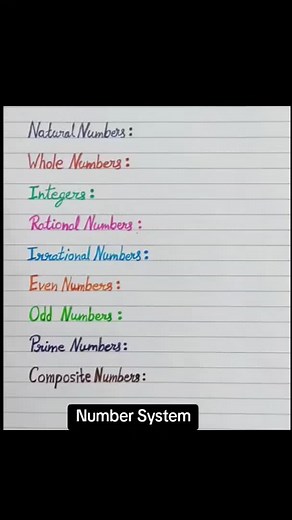 Natural Numbers:
Whole Numbers:
Integers:
Rational Numbers:
Irrational Numbers:
Even Numbers:
Odd Numbers:
Prime Numbers:
Composite Numbers:
Number System